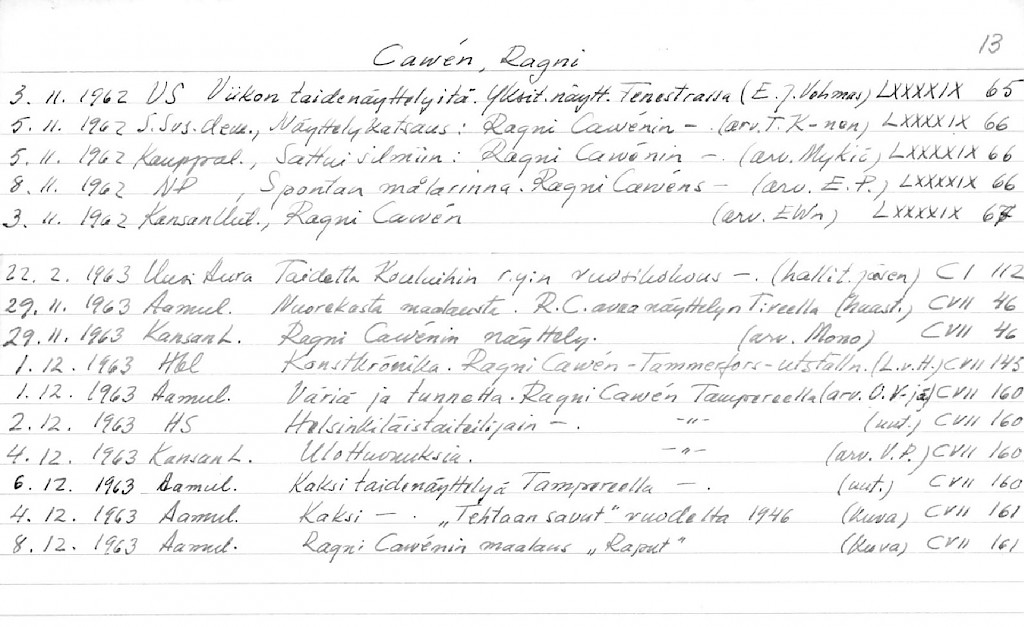 13
Cawén, Ragni
3. 11. 1962 US Viikon taidenäyttelyitä. Yksit. näytt. Fenestrassa (E. J. Vehmas) LXXXXIX 65
5. 11. 1962 S. Sos. dem., Näyttelykatsaus: Ragni Cawénin - . (arv. T. K-nen) LXXXXIX 66
5. 11. 1962 Kauppal., Sattui silmiin: Ragni Cawénin - . (arv. Mykiö) LXXXXIX 66
8. 11. 1962 NP, Spontan målarinna. Ragni Cawéns - (arv. E. P.) LXXXXIX 66
3. 11. 1962 Kansan Uut., Ragni Cawén (arv. EWn) LXXXXIX 67
22. 2. 1963 Uusi Aura Taidetta Kouluihin r.y:n vuosikokous - . (hallit. jäsen) CI 112
29. 11. 1963 Aamul. Nuorekasta maalausta. R. C. avaa näyttelyn Tireella (haast.) CVII 46
29. 11. 1963 Kansan L. Ragni Cawénin näyttely. (arv. Mono) CVII 46
1. 12. 1963 Hbl Konstkrönika. Ragni Cawén - Tammerfors - utställn. (L.v.H.) CVII 145
1. 12. 1963 Aamul. Väriä ja tunnetta. Ragni Cawén Tampereella (arv. O. V-jä) CVII 160
2. 12. 1963 HS Helsinkiläistaiteilijain - . -"- (uut.) CVII 160
4. 12. 1963 Kansan L. Ulottuvuuksia. -"- (arv. V. P.) CVII 160
6. 12. 1963 Aamul. Kaksi taidenäyttelyä Tampereella - . (uut.) CVII 160
4. 12. 1963 Aamul. Kaksi - . „Tehtaan savut" vuodelta 1946 (kuva) CVII 161
8. 12. 1963 Aamul. Ragni Cawénin maalaus „Raput" (kuva) CVII 161